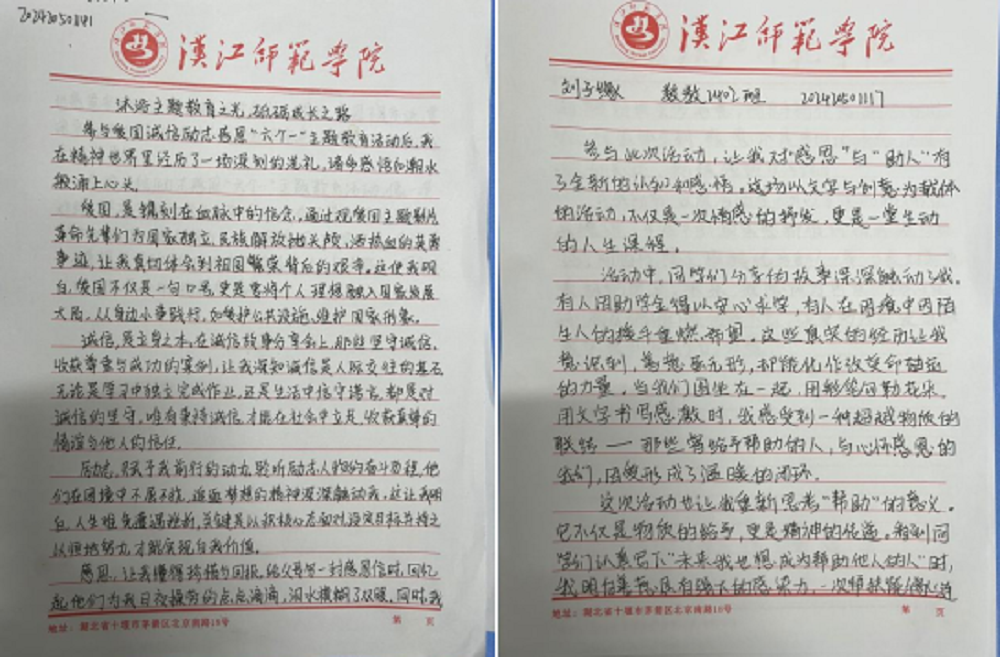 20242050841
漢江師範學院
沐浴主题教育之光,砥砺成长之路
参与爱国诚信励志感恩“六个一”主题教育活动后,我
在精神世界里经历了一场深刻的洗礼,诸多感悟如潮水
般涌上心头。
爱国,是镌刻在血脉中的信念,通过观爱国主题影片
革命先辈们为国家独立、民族解放抛头颅,洒热血的英勇
事迹,让我真切体会到祖国繁荣背后的艰辛。这使我明
白,爱国不仅是一句口号,更是需将个人理想融入国家发展
大局,从身边小事践行,如维护公共设施、维护国家形象。
诚信,是立身之本。在诚信故事分享会上,那些坚守诚信,
收获尊重与成功的案例,让我深知诚信是人际交往的基石
无论是学习中独立完成作业,还是生活中信守诺言,都是对
诚信的坚守,唯有秉持诚信,才能在社会中立足,收获真挚的
情谊与他人的信任。
励志,赋予我前行的动力,聆听励志人物的奋斗历程,他
们在困境中不屈不挠,追逐梦想的精神深深触动我,这让我明
白,人生难免遭遇挫折,关键是以积极心态面对,设定目标并持之
以恒地努力,才能实现自我价值。
感恩,让我懂得珍惜与回报,给父母写一封感恩信时,回忆
起他们为我日夜操劳的点点滴滴,泪水模糊了双眼,同时,我
地址:湖北省十堰市茅箭区北京南路18号 第 页
漢江師範學院
刘子 数教2402班 202420501117
参与此次活动,让我对“感恩”与“助人”有
了全新的认知和感悟。这场以文字与创意为载体
的活动,不仅是一次情感的抒发,更是一堂生动
的人生课程。
活动中,同学们分享的故事深深触动了我。
有人因助学金得以安心求学,有人在困境中因陌
生人的援手重燃希望。这些真实的经历让我
意识到,善意虽无形,却能化作改变命运
的力量。当我们围坐在一起,用彩笔勾勒花朵、
用文字书写感激时,我感受到一种超越物质的
联结——那些曾给予帮助的人,与心怀感恩的
我们,因爱形成了温暖的闭环。
这次活动也让我重新思考“帮助”的意义。
它不仅是物质的给予,更是精神的传递。看到同
学们认真写下“未来我也想成为帮助他人的人”时,
我明白善意具有强大的感染力,一次
地址:湖北省十堰市茅箭区北京南路18号 第 页